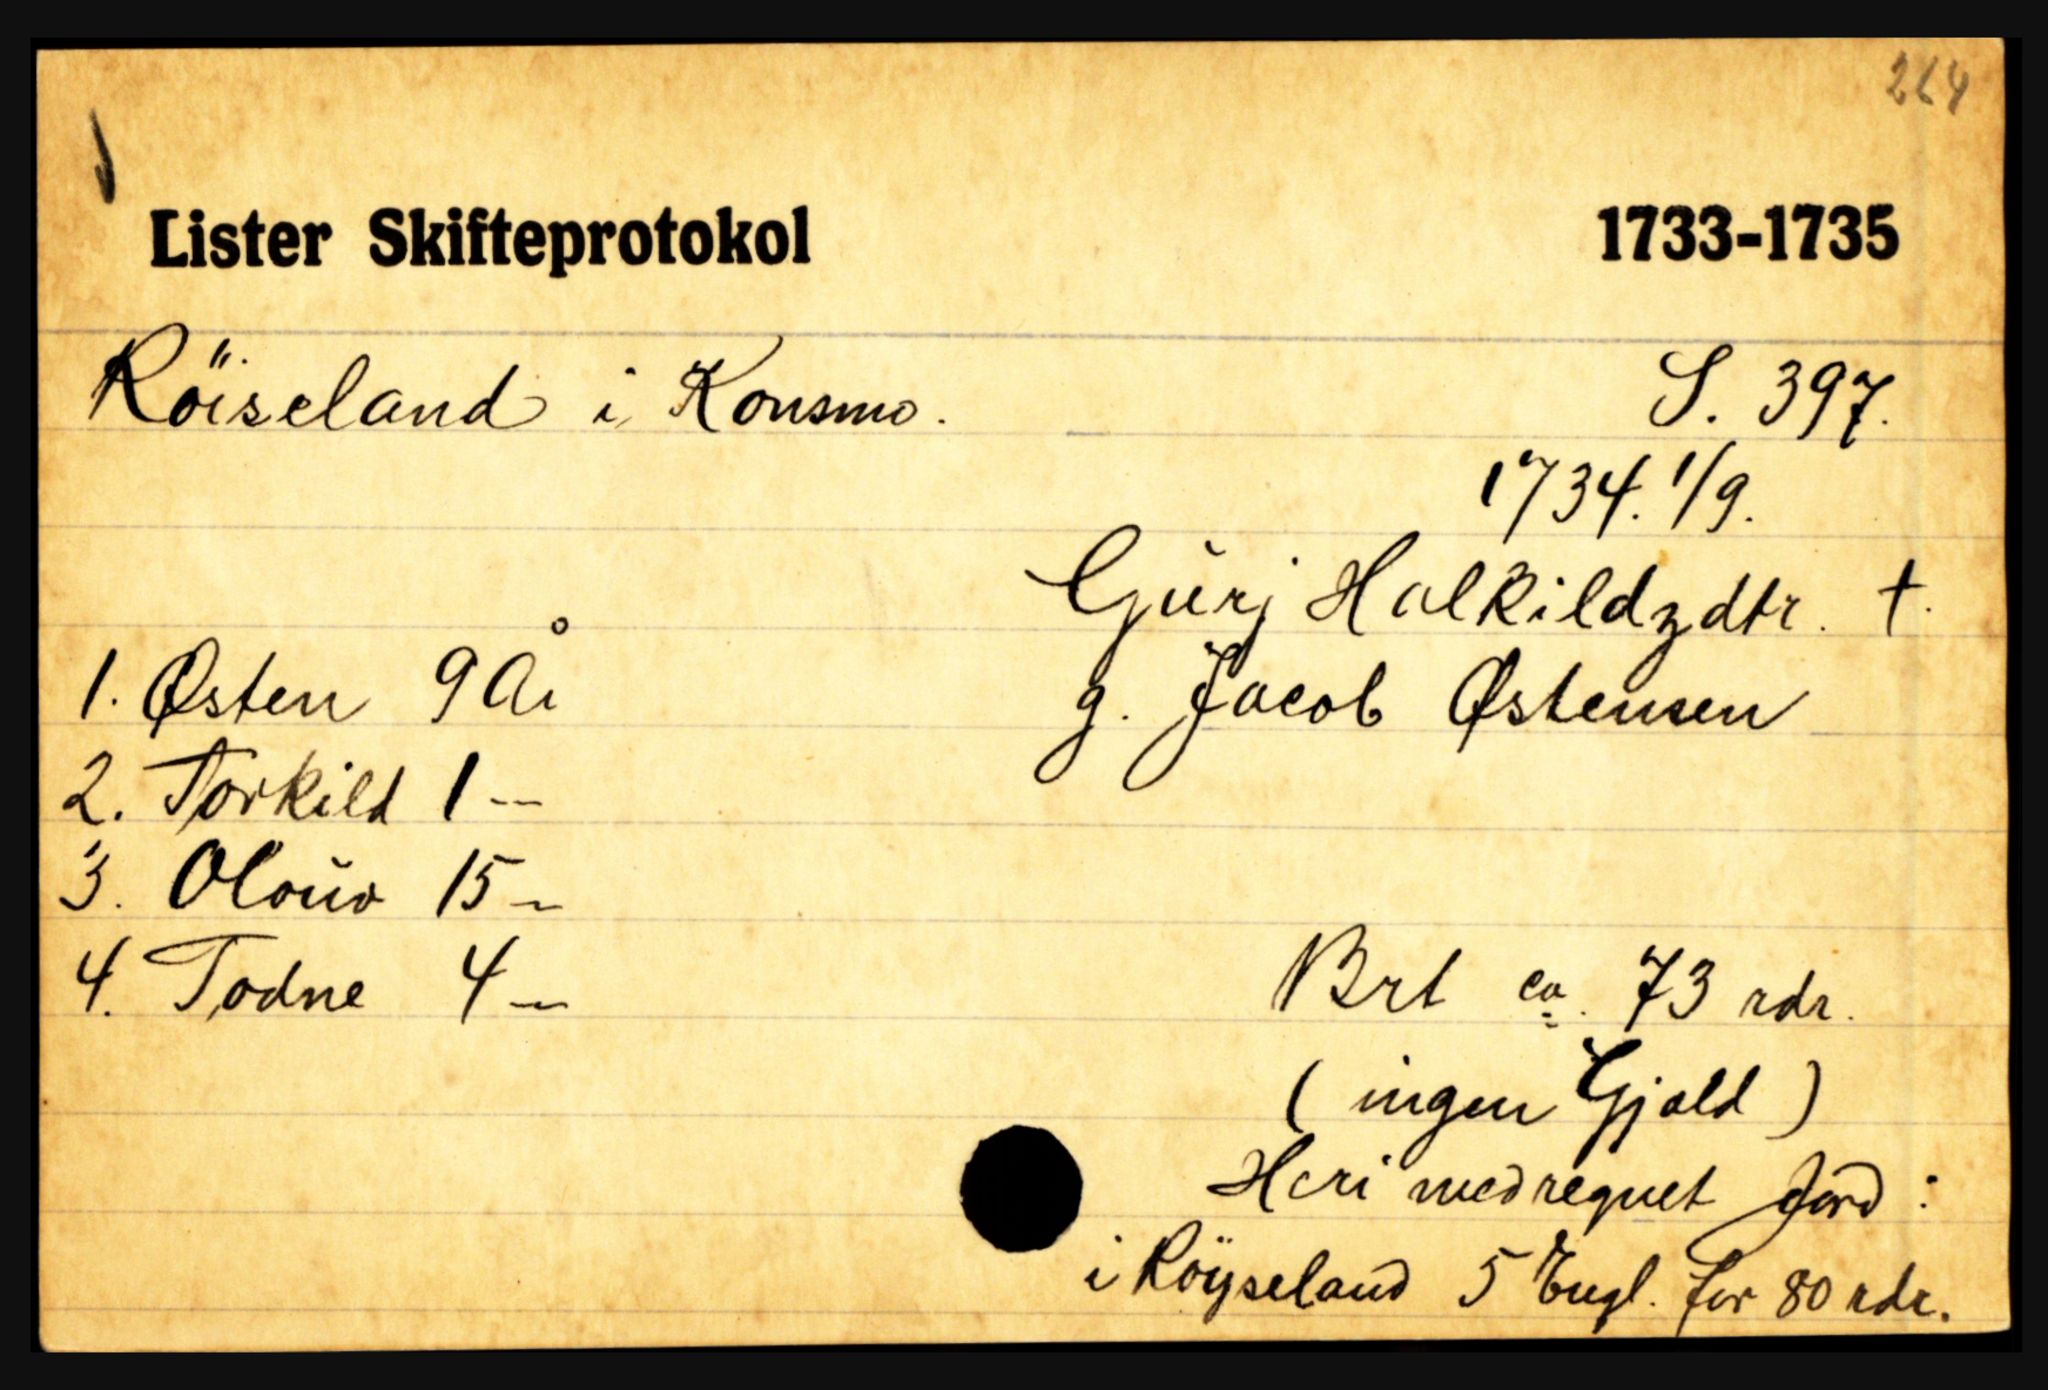 264
Lister Skifteprotokol 1733-1735
Röiseland i Konsmo. S. 397.
1734. 1/9.
Gurj Halkildzdtr. †.
1. Østen 9 År g. Jacob Østensen
2. Torkild 1 —
3. Olouv 15 —
4. Todne 4 — Brt ca. 73 rdr.
(ingen Gjæld)
Heri medregnet Jord:
i Röyseland 5 Engl. for 80 rdr.